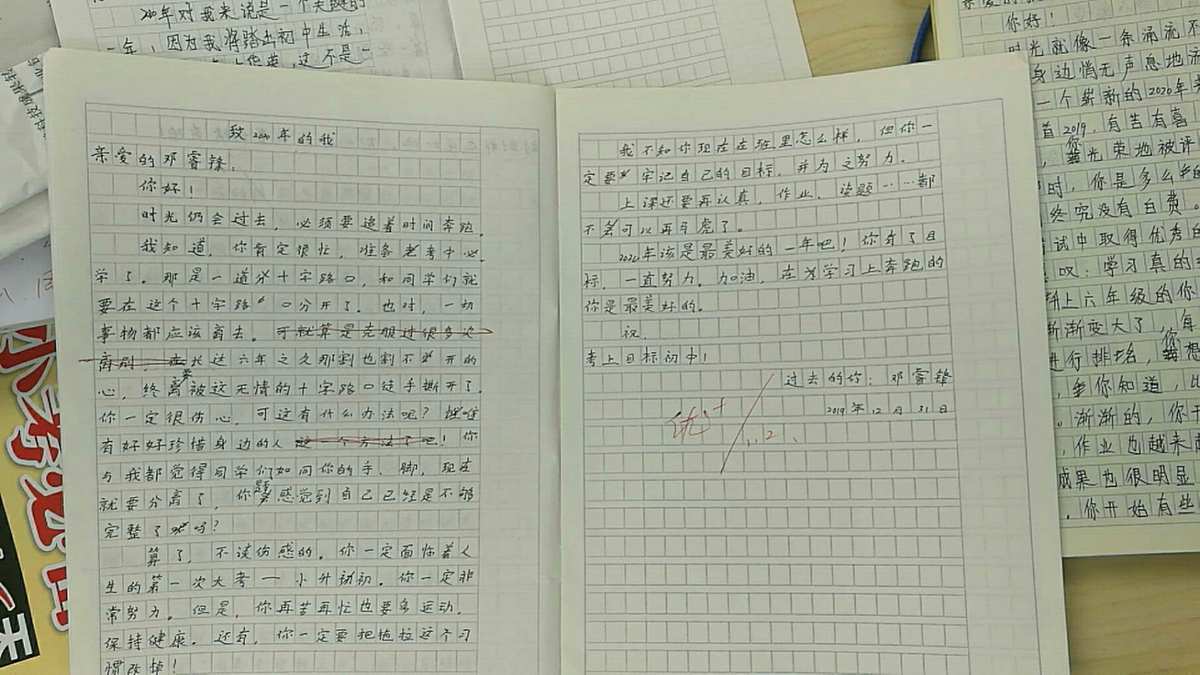 2020年对我来说是一个关键的
一年，因为我将踏出初中生活，
这不是一
致2020年的我
亲爱的邓睿锋：
你好！
时光仍会过去，必须要追着时间奔跑。
我知道，你肯定很忙，准备老考中心
学了。那是一道分十字路口，和同学们就
要在这个十字路口分开了。也对，一切
事物都应该离去。可就算是克服过很多次
离别，在长达六年之久那割也割不开的
心，终要被这无情的十字路口徒手撕开了。
你一定很伤心，可这有什么办法呢？唯
有好好珍惜身边的人这一个方法了吧！你
与我都觉得同学们如同你的手、脚，现在
就要分离了，你是感觉到自己已经是不够
完整了吗？
算了，不谈伤感的。你一定面临着人
生的第一次大考——小升初。你一定非
常努力。但是，你再苦再忙也要多运动，
保持健康。还有，你一定要把拖拉这个习
惯改掉！
我不知你现在在班里怎么样，但你一
定要牢记自己的目标，并为之努力。
上课还要再认真，作业、读题……都
不可以再马虎了。
2020年该是最美好的一年吧！你有了目
标，一直努力。加油，在学习上奔跑的
你是最美好的。
祝
考上目标初中！
过去的你：邓睿锋
2019年12月31日
优+
1.2.
你好！
时光就像一条涌流不
身边悄无声息地流
一个崭新的2020年来
首2019，有苦有喜
你光荣地被评
时，你是多么
终究没有白费。
试中取得优秀的
叹：学习真的
升上六年级的你
渐渐变大了，每
进行排名，你想
你知道，比
。渐渐的，你开
，作业也越来越
成果也很明显
，你开始有些
小考
天